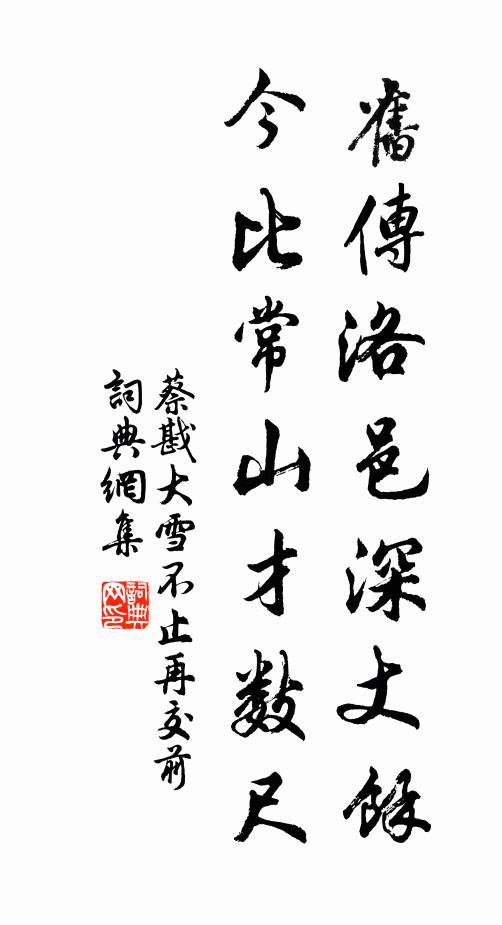 舊傳洛邑深丈餘
今比常山才數尺
蔡戡大雪不止再交前
詞典網集
詞典网印